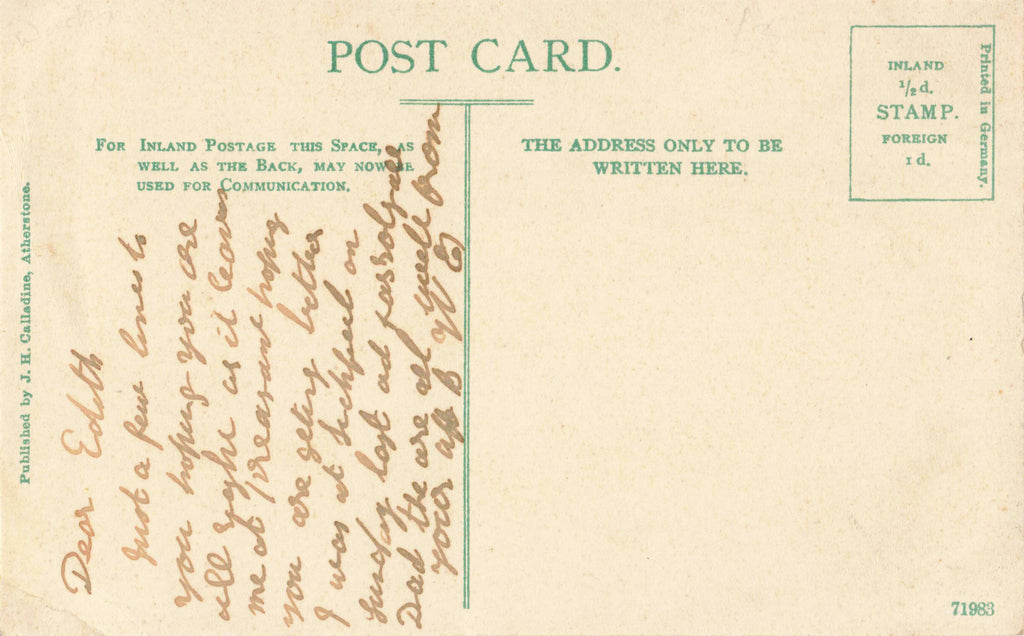 POST CARD.
FOR INLAND POSTAGE THIS SPACE, AS
WELL AS THE BACK, MAY NOW BE
USED FOR COMMUNICATION.
THE ADDRESS ONLY TO BE
WRITTEN HERE.
INLAND
½d.
STAMP.
FOREIGN
1d.
Printed in Germany.
Published by J. H. Calladine, Atherstone.
Dear Edith
Just a few lines to
you hoping you are
all right as it leaves
me at preasant hoping
you are getting better
I was at on
Sunday last and
Dad the are all well from
your
71983